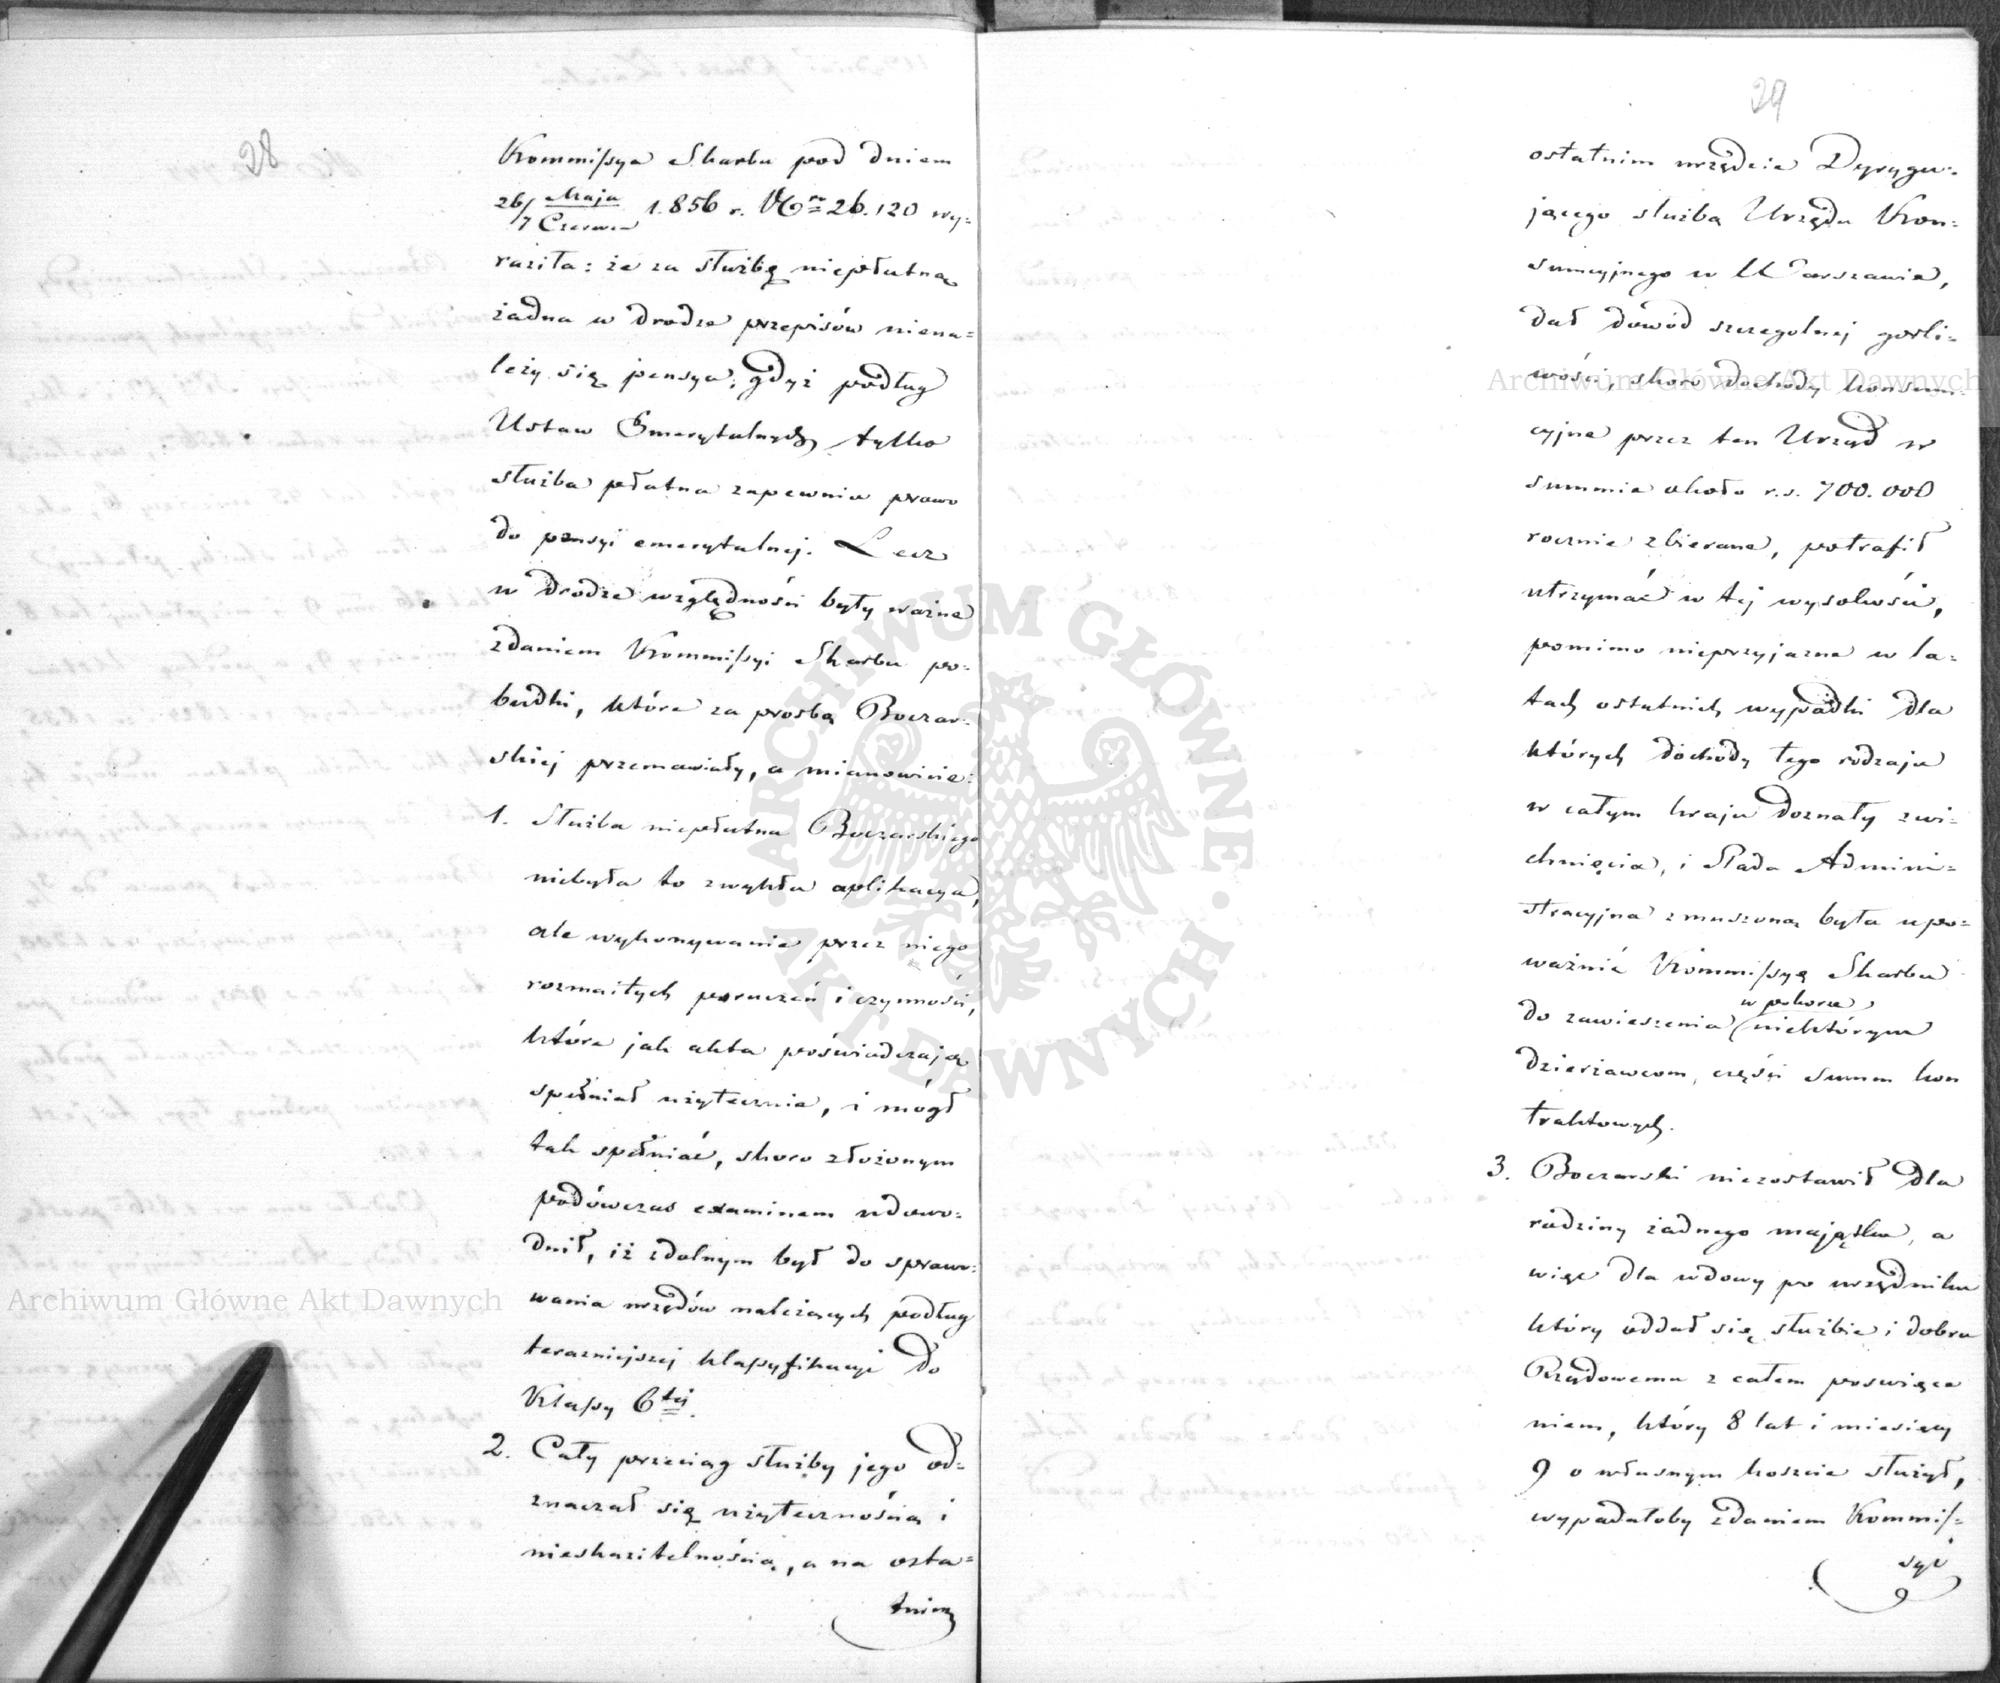 28
Kommissya Skarbu pod dniem
26/7 Maja/Czerwca 1.856 r. Nro 26.120 wy-
raziła: że za służbę niepłatną
żadna w drodze przepisów niena-
leży się pensya; gdyż podług
Ustaw Emerytalnych tylko
służba płatna zapewnia prawo
do pensyi emerytalnej. Lecz
w drodze względności były ważne
zdaniem Kommissyi Skarbu po-
budki, które za prosbą Boczar-
skiej przemawiały, a mianowicie:
1. Służba niepłatna Boczarskiego
niebyła to zwykła aplikacya,
ale wykonywanie przez niego
rozmaitych poruczeń i czynności,
które jak akta poświadczają
spełniał użytecznie, i mógł
tak spełniać, skoro złożonym
podówczas examinem udowo-
dnił, iż zdolnym był do sprawo-
wania urzędów należących podług
teraźniejszej klassyfikacyi do
Klassy 6tej.
2. Cały przeciąg służby jego od-
znaczał się użytecznością i
nieskazitelnością, a na osta-
tnim
29
ostatnim urzędzie Dyrygu-
jącego służbą Urzędu Kon-
sumcyjnego w Warszawie,
dał dowód szczegolnej gorli-
wości, skoro dochody konsum-
cyjne przez ten Urząd w
summie około r.s. 700.000
rocznie zbierane, potrafił
utrzymać w tej wysokości,
pomimo nieprzyjazne w la-
tach ostatnich wypadki dla
których dochody tego rodzaju
w całym kraju doznały zwi-
chnięcia, i Rada Admini-
stracyjna zmuszoną była upo-
ważnić Kommissyę Skarbu
w poborze
do zawieszenia niektórym
dzierżawcom, części summ kon
traktowych.
3. Boczarski niezostawił dla
rodziny żadnego majątku, a
więc dla wdowy po urzędniku
który oddał się służbie i dobru
Rządowemu z całem poswięce
niem, który 8 lat i miesięcy
9 o własnym koszcie służył,
wypadałoby zdaniem Kommis-
syi
Archiwum Główne Akt Dawnych
Archiwum Główne Akt Dawnych
ARCHIWUM GŁÓWNE · AKT DAWNYCH ·